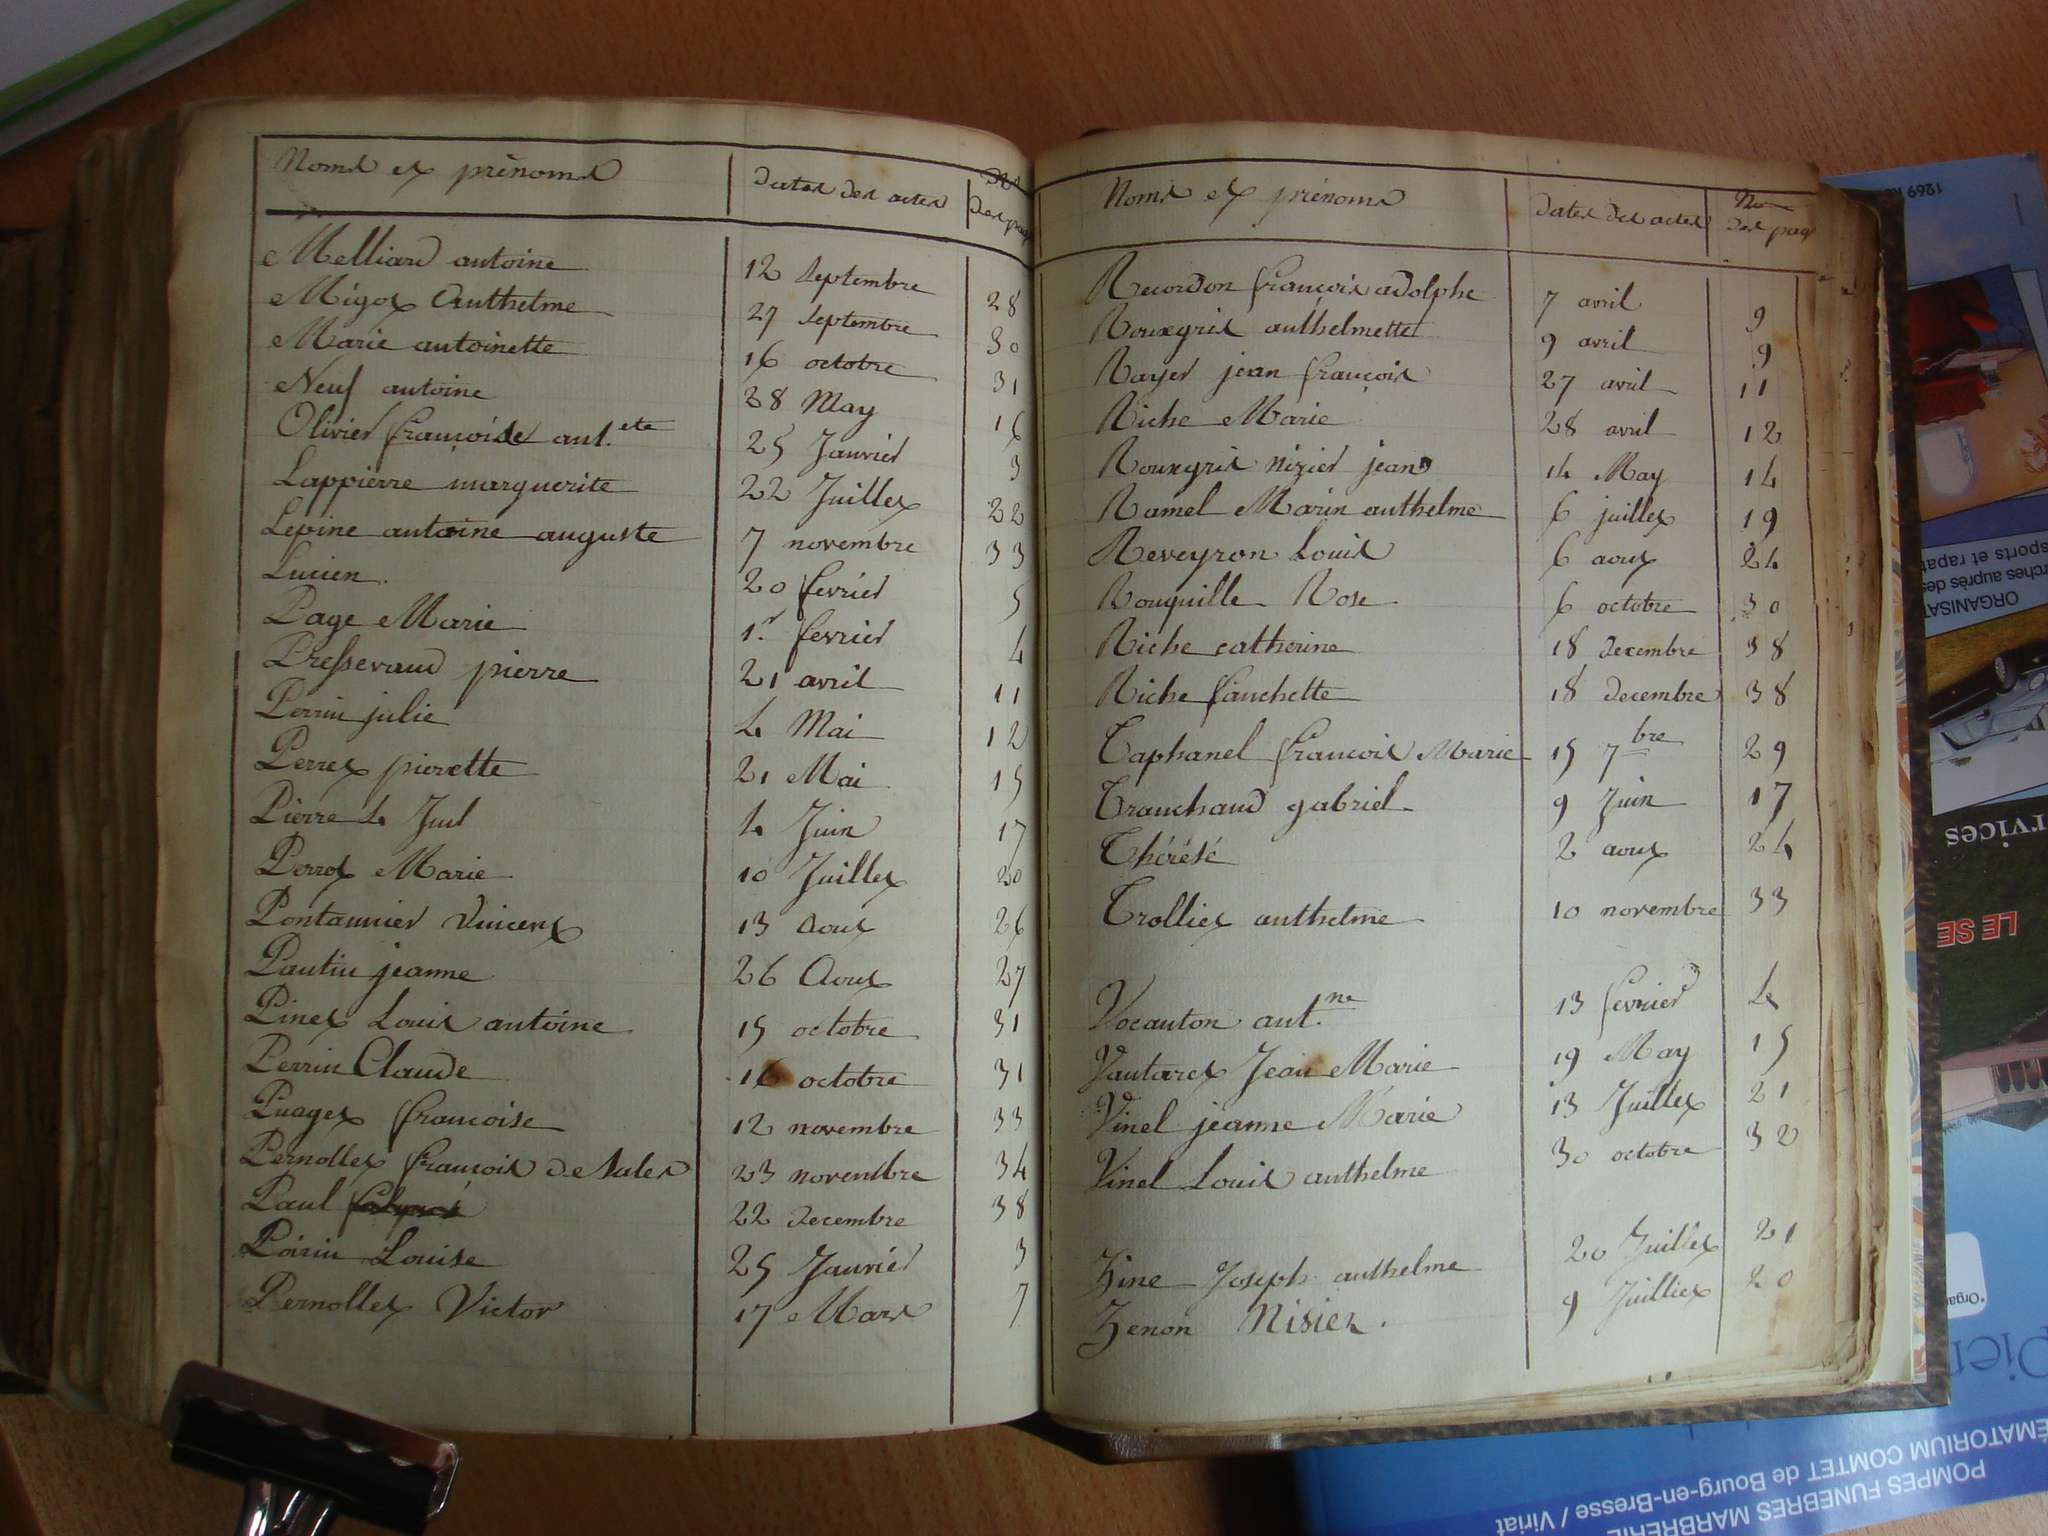 Noms et prénoms dates des actes Nos des pag
Melliard antoine 12 Septembre 28
Migot Anthelme 27 Septembre 30
Marie antoinette 16 octobre 31
Neuf antoine 28 May 16
Olivier françoise ant.ete 25 Janvier 3
Lappierre marguerite 22 Juillet 22
Lepine antoine auguste 7 novembre 33
Lucien. 20 fevrier 5
Page Marie 1.r fevrier 4
Presseraud pierre 21 avril 11
Perrin julie 4 Mai 12
Perret pierette 21 Mai 15
Pierre 4 Juil 4 Juin 17
Perrot Marie 10 Juillet 20
Pontannier Vincent 13 Aout 26
Pantin jeanne 26 Aout 27
Pinet Louis antoine 15 octobre 31
Perrin Claude 16 octobre 31
Puaget francoise 12 novembre 33
Pernollet francois de Sales 23 novembre 34
Paul 22 decembre 38
Poirin Louise 25 Janvier 3
Pernollet Victor 17 Mars 7
Noms et prénoms dates des actes Nos des pag
Recordon françois adolphe 7 avril 9
Rouxgris anthelmette 9 avril 9
Rayer jean francois 27 avril 11
Riche Marie 28 avril 12
Rouxgris nizier jean 14 May 14
Ramel Marin anthelme 6 juillet 19
Reveyron Louis 6 aout 24
Rouquille Rose 6 octobre 30
Riche catherine 18 decembre 38
Riche fanchette 18 decembre 38
Taphanel francois Marie 15 7bre 29
Tranchand gabriel 9 Juin 17
Thérésé 2 aout 24
Trolliet anthelme 10 novembre 33
Vocanton ant.ne 13 fevrier 4
Vautaret Jean Marie 19 May 15
Vinel jeanne Marie 13 Juillet 21
Vinel Louis anthelme 30 octobre 32
Zine Joseph anthelme 20 Juillet 21
Zenon Nisier. 9 Juilliet 20
1269
sports et rapat
rches auprès des
ORGANISAT
rvices
LE SE
*Organ
Pier
ÉMATORIUM COMTET de Bourg-en-Bresse / Viriat
POMPES FUNEBRES MARBRERIE